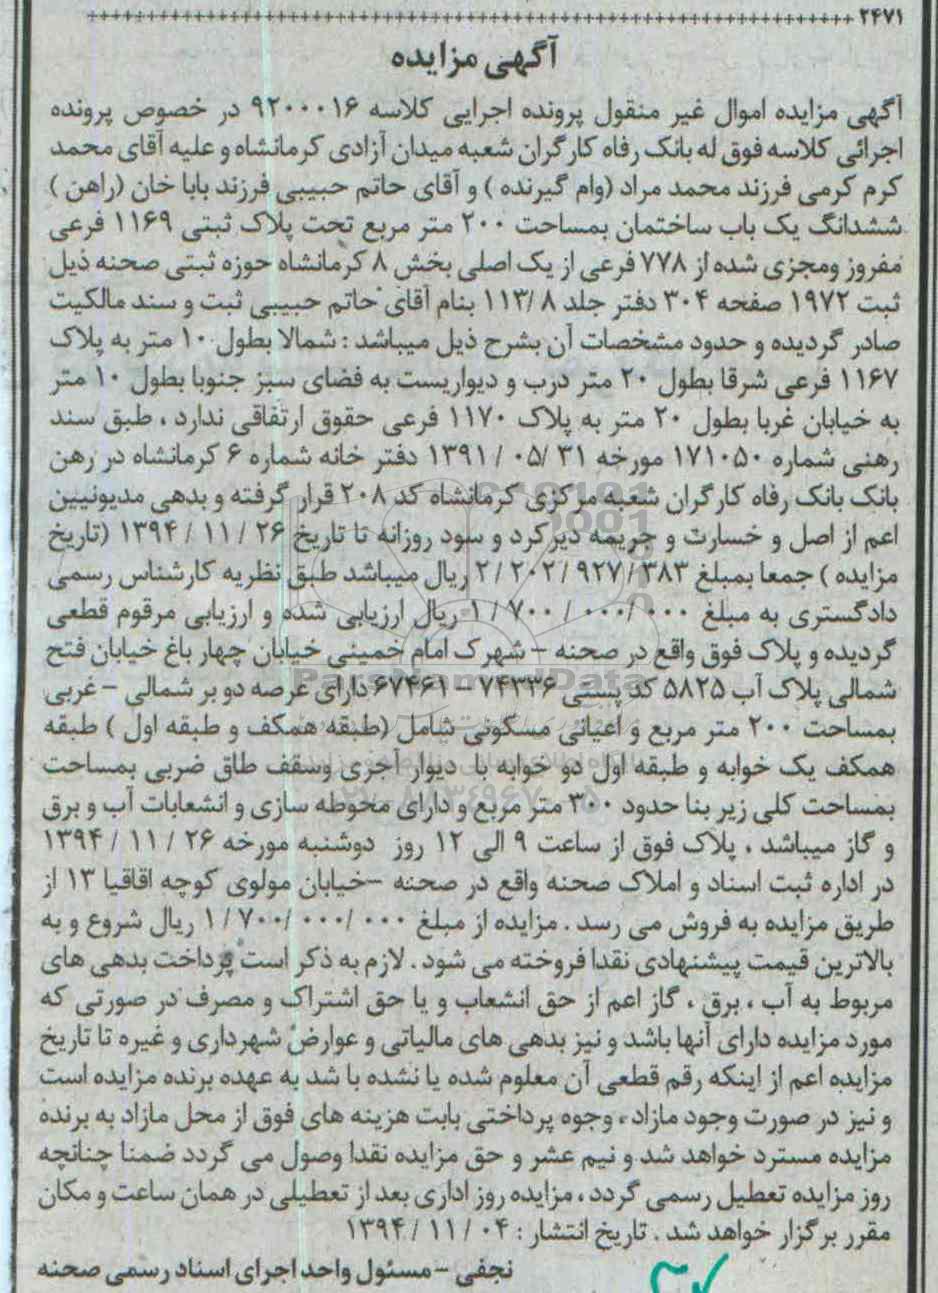 ۲۴۷۱ ++++++++++++++++++++++++++++++++++++++++++++++++
آگهی مزایده
آگهی مزایده اموال غیر منقول پرونده اجرایی کلاسه ۹۲۰۰۰۱۶ در خصوص پرونده
اجرائی کلاسه فوق له بانک رفاه کارگران شعبه میدان آزادی کرمانشاه و علیه آقای محمد
کرم کرمی فرزند محمد مراد (وام گیرنده ) و آقای حاتم حبیبی فرزند بابا خان (راهن )
ششدانگ یک باب ساختمان بمساحت ۲۰۰ متر مربع تحت پلاک ثبتی ۱۱۶۹ فرعی
مفروز ومجزی شده از ۷۷۸ فرعی از یک اصلی بخش ۸ کرمانشاه حوزه ثبتی صحنه ذیل
ثبت ۱۹۷۲ صفحه ۳۰۴ دفتر جلد ۱۱۳/۸ بنام آقای حاتم حبیبی ثبت و سند مالکیت
صادر گردیده و حدود مشخصات آن بشرح ذیل میباشد : شمالا بطول ۱۰ متر به پلاک
۱۱۶۷ فرعی شرقا بطول ۲۰ متر درب و دیواریست به فضای سبز جنوبا بطول ۱۰ متر
به خیابان غربا بطول ۲۰ متر به پلاک ۱۱۷۰ فرعی حقوق ارتفاقی ندارد ، طبق سند
رهنی شماره ۱۷۱۰۵۰ مورخه ۳۱ /۰۵ / ۱۳۹۱ دفتر خانه شماره ۶ کرمانشاه در رهن
بانک بانک رفاه کارگران شعبه مرکزی کرمانشاه کد ۲۰۸ قرار گرفته و بدهی مدیونیین
اعم از اصل و خسارت و جریمه دیرکرد و سود روزانه تا تاریخ ۲۶ / ۱۱ / ۱۳۹۴ (تاریخ
مزایده ) جمعا بمبلغ ۳۸۳ / ۹۲۷ / ۲۰۲ / ۲ ریال میباشد طبق نظریه کارشناس رسمی
دادگستری به مبلغ ۰۰۰ /۰۰۰ / ۷۰۰ /۱ ریال ارزیابی شده و ارزیابی مرقوم قطعی
گردیده و پلاک فوق واقع در صحنه - شهرک امام خمینی خیابان چهار باغ خیابان فتح
شمالی پلاک آب ۵۸۲۵ کد پستی ۷۴۳۳۶ - ۶۷۴۶۱ دارای عرصه دو بر شمالی - غربی
بمساحت ۲۰۰ متر مربع و اعیانی مسکونی شامل (طبقه همکف و طبقه اول ) طبقه
همکف یک خوابه و طبقه اول دو خوابه با دیوار آجری وسقف طاق ضربی بمساحت
بمساحت کلی زیر بنا حدود ۳۰۰ متر مربع و دارای محوطه سازی و انشعابات آب و برق
و گاز میباشد ، پلاک فوق از ساعت ۹ الی ۱۲ روز دوشنبه مورخه ۲۶ / ۱۱ / ۱۳۹۴
در اداره ثبت اسناد و املاک صحنه واقع در صحنه -خیابان مولوی کوچه اقاقیا ۱۳ از
طریق مزایده به فروش می رسد . مزایده از مبلغ ۰۰۰ /۰۰۰ /۷۰۰ /۱ ریال شروع و به
بالاترین قیمت پیشنهادی نقدا فروخته می شود . لازم به ذکر است پرداخت بدهی های
مربوط به آب ، برق ، گاز اعم از حق انشعاب و یا حق اشتراک و مصرف در صورتی که
مورد مزایده دارای آنها باشد و نیز بدهی های مالیاتی و عوارض شهرداری و غیره تا تاریخ
مزایده اعم از اینکه رقم قطعی آن معلوم شده یا نشده با شد به عهده برنده مزایده است
و نیز در صورت وجود مازاد ، وجوه پرداختی بابت هزینه های فوق از محل مازاد به برنده
مزایده مسترد خواهد شد و نیم عشر و حق مزایده نقدا وصول می گردد ضمنا چنانچه
روز مزایده تعطیل رسمی گردد ، مزایده روز اداری بعد از تعطیلی در همان ساعت و مکان
مقرر برگزار خواهد شد . تاریخ انتشار : ۰۴ / ۱۱ / ۱۳۹۴
نجفی -مسئول واحد اجرای اسناد رسمی صحنه
ParsNamadData